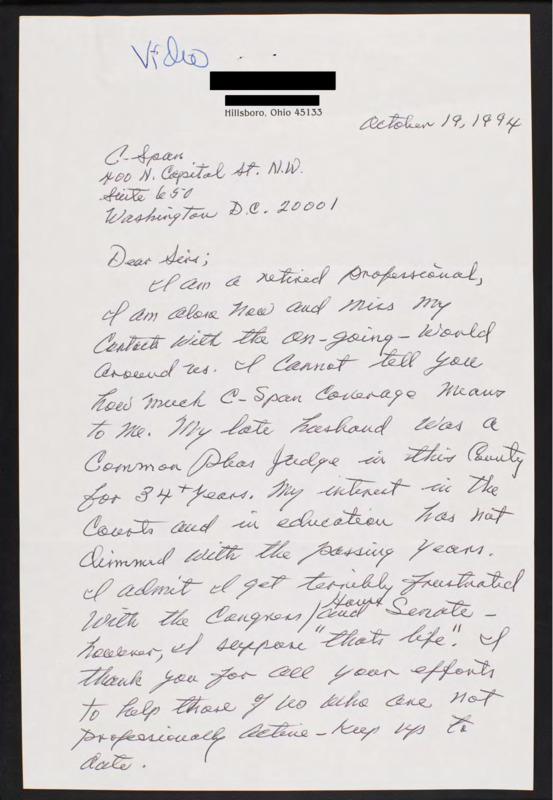 Video
Hillsboro, Ohio 45133
October 19, 1994
C-Span
400 N. Capital St. N.W.
Suite 650
Washington D.C. 20001
Dear Sirs;
I am a retired professional,
I am alone now and miss my
Contacts with the on-going-world
around us. I cannot tell you
how much C-Span Coverage means
to me. My late husband was a
Common Pleas Judge in this County
for 34+ years. My interest in the
Courts and in education has not
dimmed with the passing years.
I admit I get terribly frustrated
House
with the Congress/and Senate -
however, I suppose "thats life". I
thank you for all your efforts
to help those of us who are not
professionally active - keep up to
date.